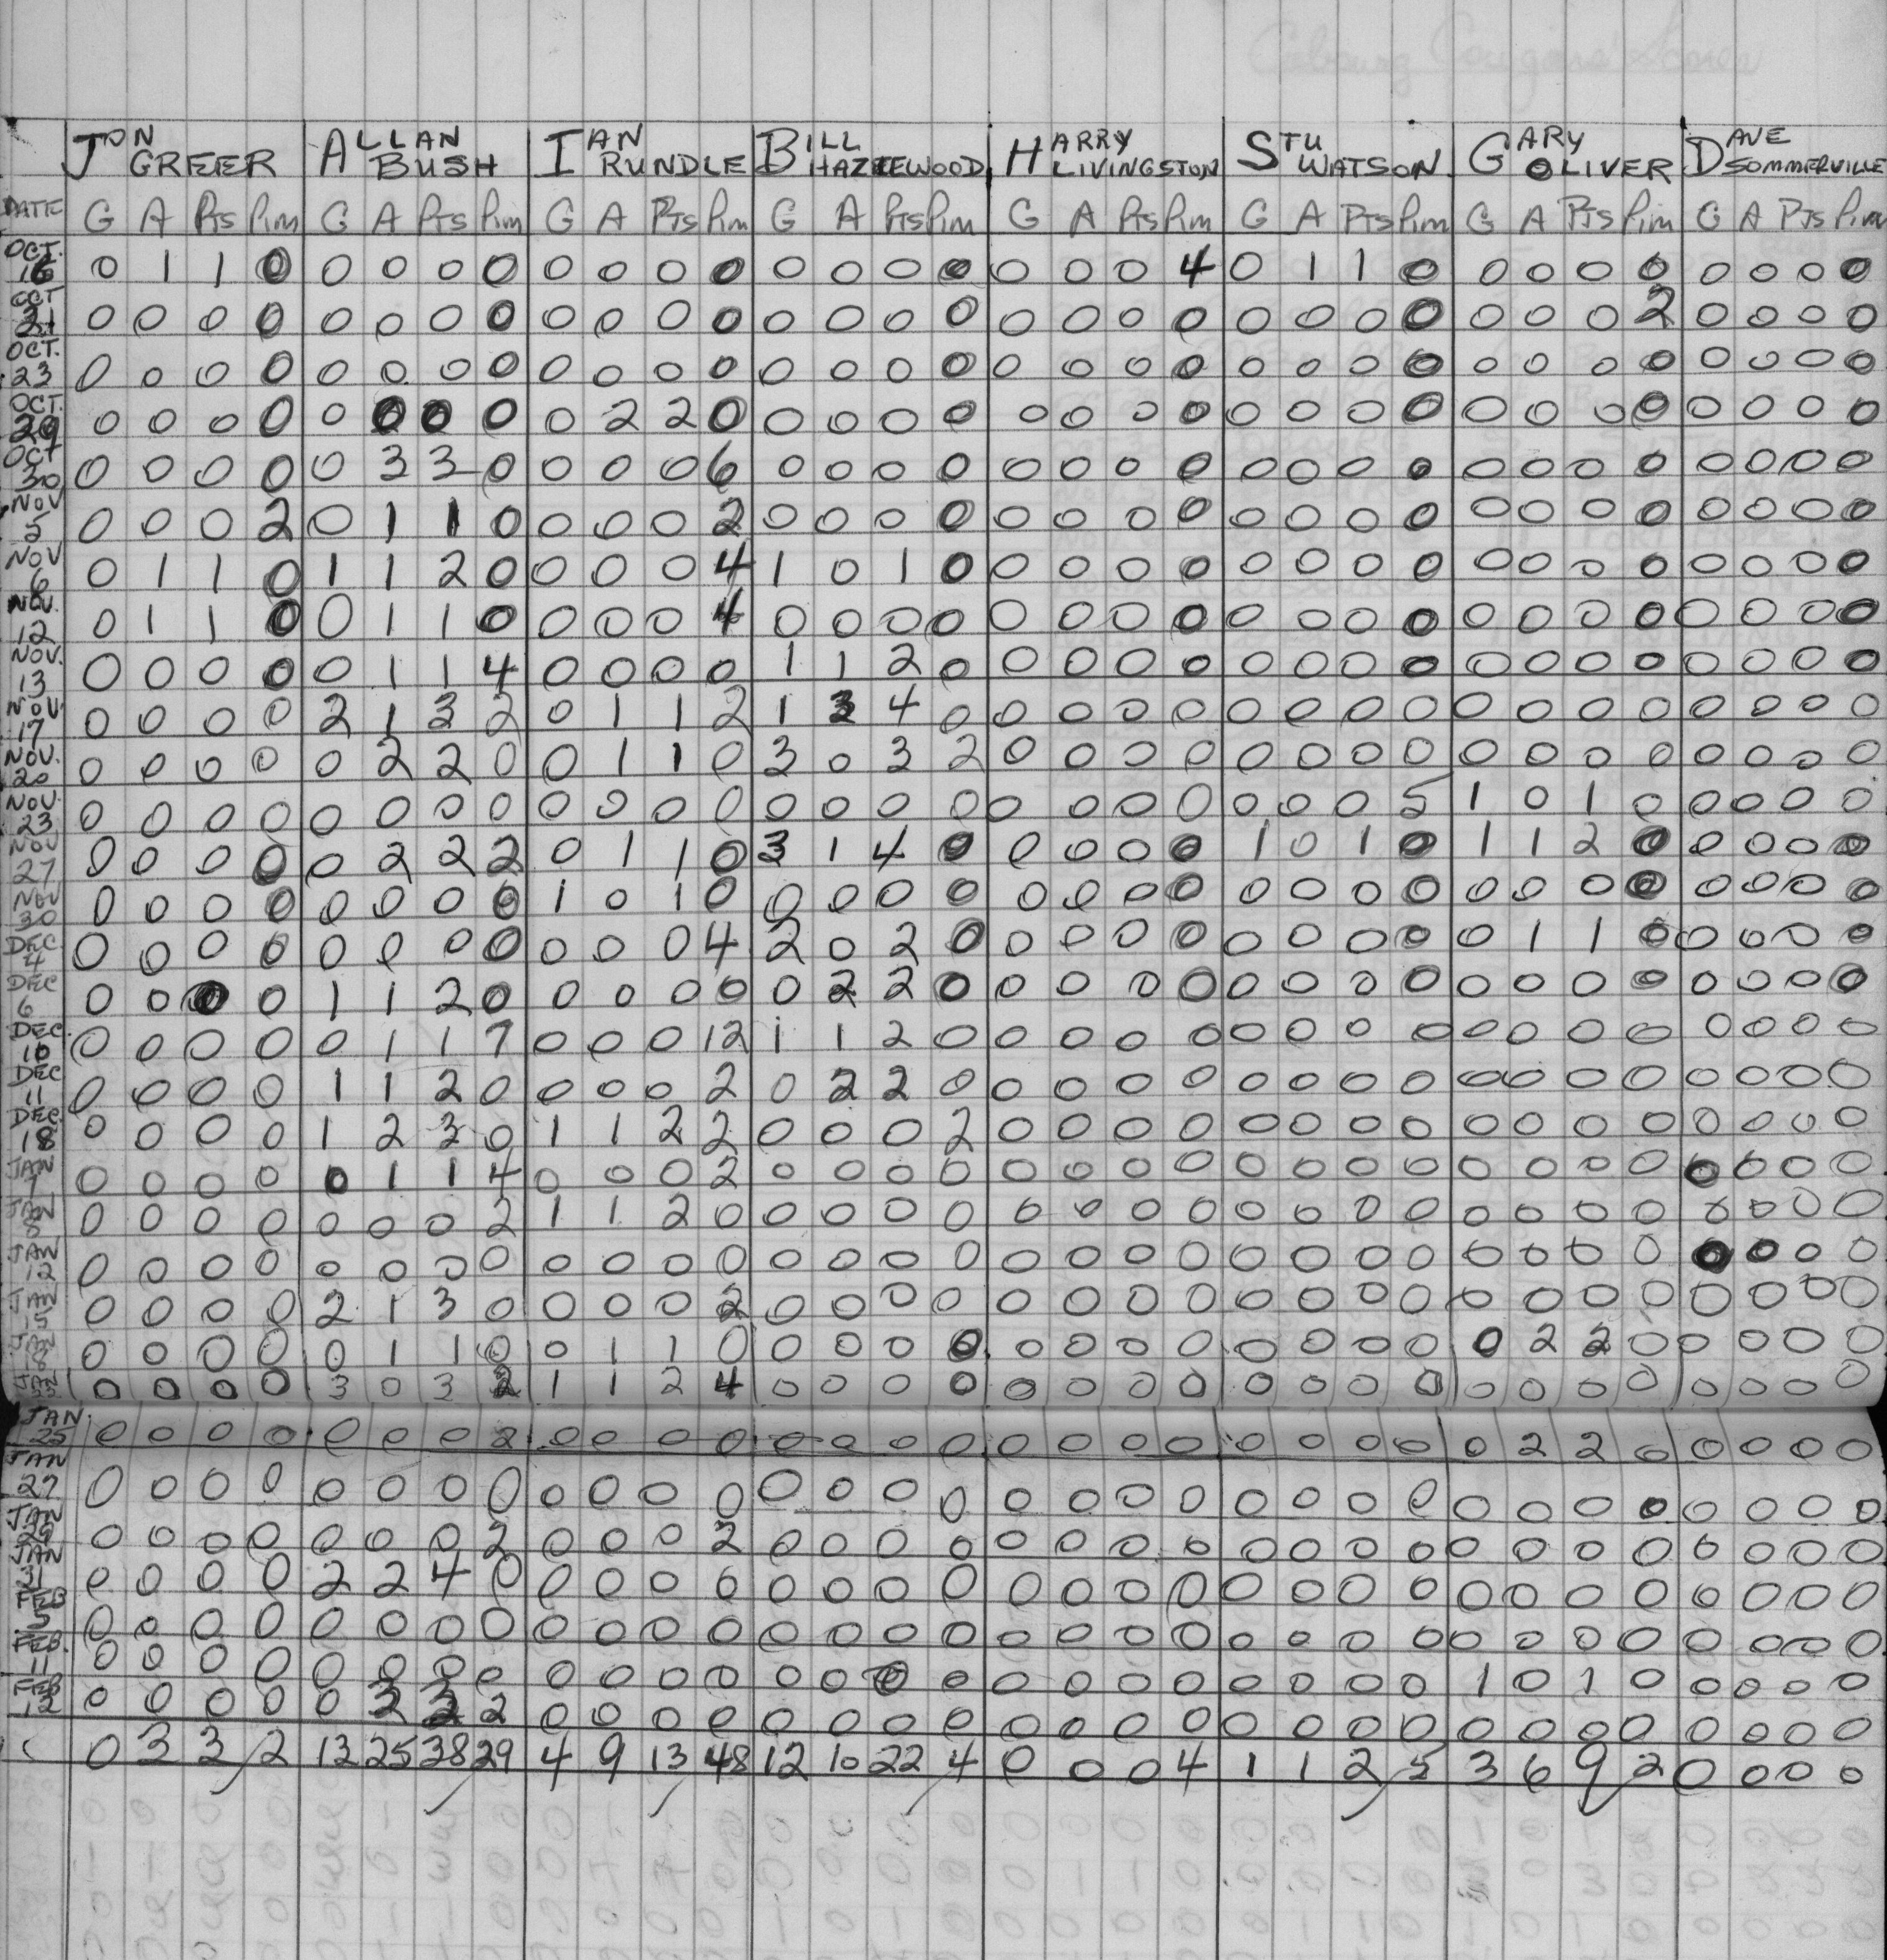 Cobourg Cougars' Scores
JON GREER ALLAN BUSH IAN RUNDLE BILL HAZLEWOOD HARRY LIVINGSTON STU WATSON GARY OLIVER DAVE SOMMERVILLE
DATE G A Pts Pim G A Pts Pim G A Pts Pim G A Pts Pim G A Pts Pim G A Pts Pim G A Pts Pim G A Pts Pim
OCT. 16 0 1 1 0 0 0 0 0 0 0 0 0 0 0 0 0 0 0 0 4 0 1 1 0 0 0 0 0 0 0 0 0
OCT 21 0 0 0 0 0 0 0 0 0 0 0 0 0 0 0 0 0 0 0 0 0 0 0 0 0 0 0 2 0 0 0 0
OCT. 23 0 0 0 0 0 0 0 0 0 0 0 0 0 0 0 0 0 0 0 0 0 0 0 0 0 0 0 0 0 0 0 0
OCT. 29 0 0 0 0 0 0 0 0 0 2 2 0 0 0 0 0 0 0 0 0 0 0 0 0 0 0 0 0 0 0 0 0
OCT 30 0 0 0 0 0 3 3 0 0 0 0 6 0 0 0 0 0 0 0 0 0 0 0 0 0 0 0 0 0 0 0 0
NOV 5 0 0 0 2 0 1 1 0 0 0 0 2 0 0 0 0 0 0 0 0 0 0 0 0 0 0 0 0 0 0 0 0
NOV 6 0 1 1 0 1 1 2 0 0 0 0 4 1 0 1 0 0 0 0 0 0 0 0 0 0 0 0 0 0 0 0 0
NOV. 12 0 1 1 0 0 1 1 0 0 0 0 4 0 0 0 0 0 0 0 0 0 0 0 0 0 0 0 0 0 0 0 0
NOV. 13 0 0 0 0 0 1 1 4 0 0 0 0 1 1 2 0 0 0 0 0 0 0 0 0 0 0 0 0 0 0 0 0
NOV. 17 0 0 0 0 2 1 3 2 0 1 1 2 1 3 4 0 0 0 0 0 0 0 0 0 0 0 0 0 0 0 0 0
NOV. 20 0 0 0 0 0 2 2 0 0 1 1 0 3 0 3 2 0 0 0 0 0 0 0 0 0 0 0 0 0 0 0 0
NOV. 23 0 0 0 0 0 0 0 0 0 0 0 0 0 0 0 0 0 0 0 0 0 0 0 5 1 0 1 0 0 0 0 0
NOV 27 0 0 0 0 0 2 2 2 0 1 1 0 3 1 4 0 0 0 0 0 1 0 1 0 1 1 2 0 0 0 0 0
NOV 30 0 0 0 0 0 0 0 0 1 0 1 0 0 0 0 0 0 0 0 0 0 0 0 0 0 0 0 0 0 0 0 0
DEC 4 0 0 0 0 0 0 0 0 0 0 0 4 2 0 2 0 0 0 0 0 0 0 0 0 0 1 1 0 0 0 0 0
DEC 6 0 0 0 0 1 1 2 0 0 0 0 0 0 2 2 0 0 0 0 0 0 0 0 0 0 0 0 0 0 0 0 0
DEC. 10 0 0 0 0 0 1 1 7 0 0 0 12 1 1 2 0 0 0 0 0 0 0 0 0 0 0 0 0 0 0 0 0
DEC 11 0 0 0 0 1 1 2 0 0 0 0 2 0 2 2 0 0 0 0 0 0 0 0 0 0 0 0 0 0 0 0 0
DEC. 18 0 0 0 0 1 2 3 0 1 1 2 2 0 0 0 2 0 0 0 0 0 0 0 0 0 0 0 0 0 0 0 0
JAN 7 0 0 0 0 0 1 1 4 0 0 0 2 0 0 0 0 0 0 0 0 0 0 0 0 0 0 0 0 0 0 0 0
JAN 8 0 0 0 0 0 0 0 2 1 1 2 0 0 0 0 0 0 0 0 0 0 0 0 0 0 0 0 0 0 0 0 0
JAN 12 0 0 0 0 0 0 0 0 0 0 0 0 0 0 0 0 0 0 0 0 0 0 0 0 0 0 0 0 0 0 0 0
JAN 15 0 0 0 0 2 1 3 0 0 0 0 2 0 0 0 0 0 0 0 0 0 0 0 0 0 0 0 0 0 0 0 0
JAN 18 0 0 0 0 0 1 1 0 0 1 1 0 0 0 0 0 0 0 0 0 0 0 0 0 0 2 2 0 0 0 0 0
JAN 0 0 0 0 3 0 3 2 1 1 2 4 0 0 0 0 0 0 0 0 0 0 0 0 0 0 0 0 0 0 0 0
JAN. 25 0 0 0 0 0 0 0 2 0 0 0 0 0 0 0 0 0 0 0 0 0 0 0 0 0 2 2 0 0 0 0 0
JAN 27 0 0 0 0 0 0 0 0 0 0 0 0 0 0 0 0 0 0 0 0 0 0 0 0 0 0 0 0 0 0 0 0
JAN 29 0 0 0 0 0 0 0 2 0 0 0 2 0 0 0 0 0 0 0 0 0 0 0 0 0 0 0 0 0 0 0 0
JAN 31 0 0 0 0 2 2 4 0 0 0 0 0 0 0 0 0 0 0 0 0 0 0 0 0 0 0 0 0 0 0 0 0
FEB 5 0 0 0 0 0 0 0 0 0 0 0 0 0 0 0 0 0 0 0 0 0 0 0 0 0 0 0 0 0 0 0 0
FEB. 11 0 0 0 0 0 0 0 0 0 0 0 0 0 0 0 0 0 0 0 0 0 0 0 0 1 0 1 0 0 0 0 0
FEB 12 0 0 0 0 0 3 3 2 0 0 0 0 0 0 0 0 0 0 0 0 0 0 0 0 0 0 0 0 0 0 0 0
0 3 3 2 13 25 38 29 4 9 13 48 12 10 22 4 0 0 0 4 1 1 2 5 3 6 9 2 0 0 0 0